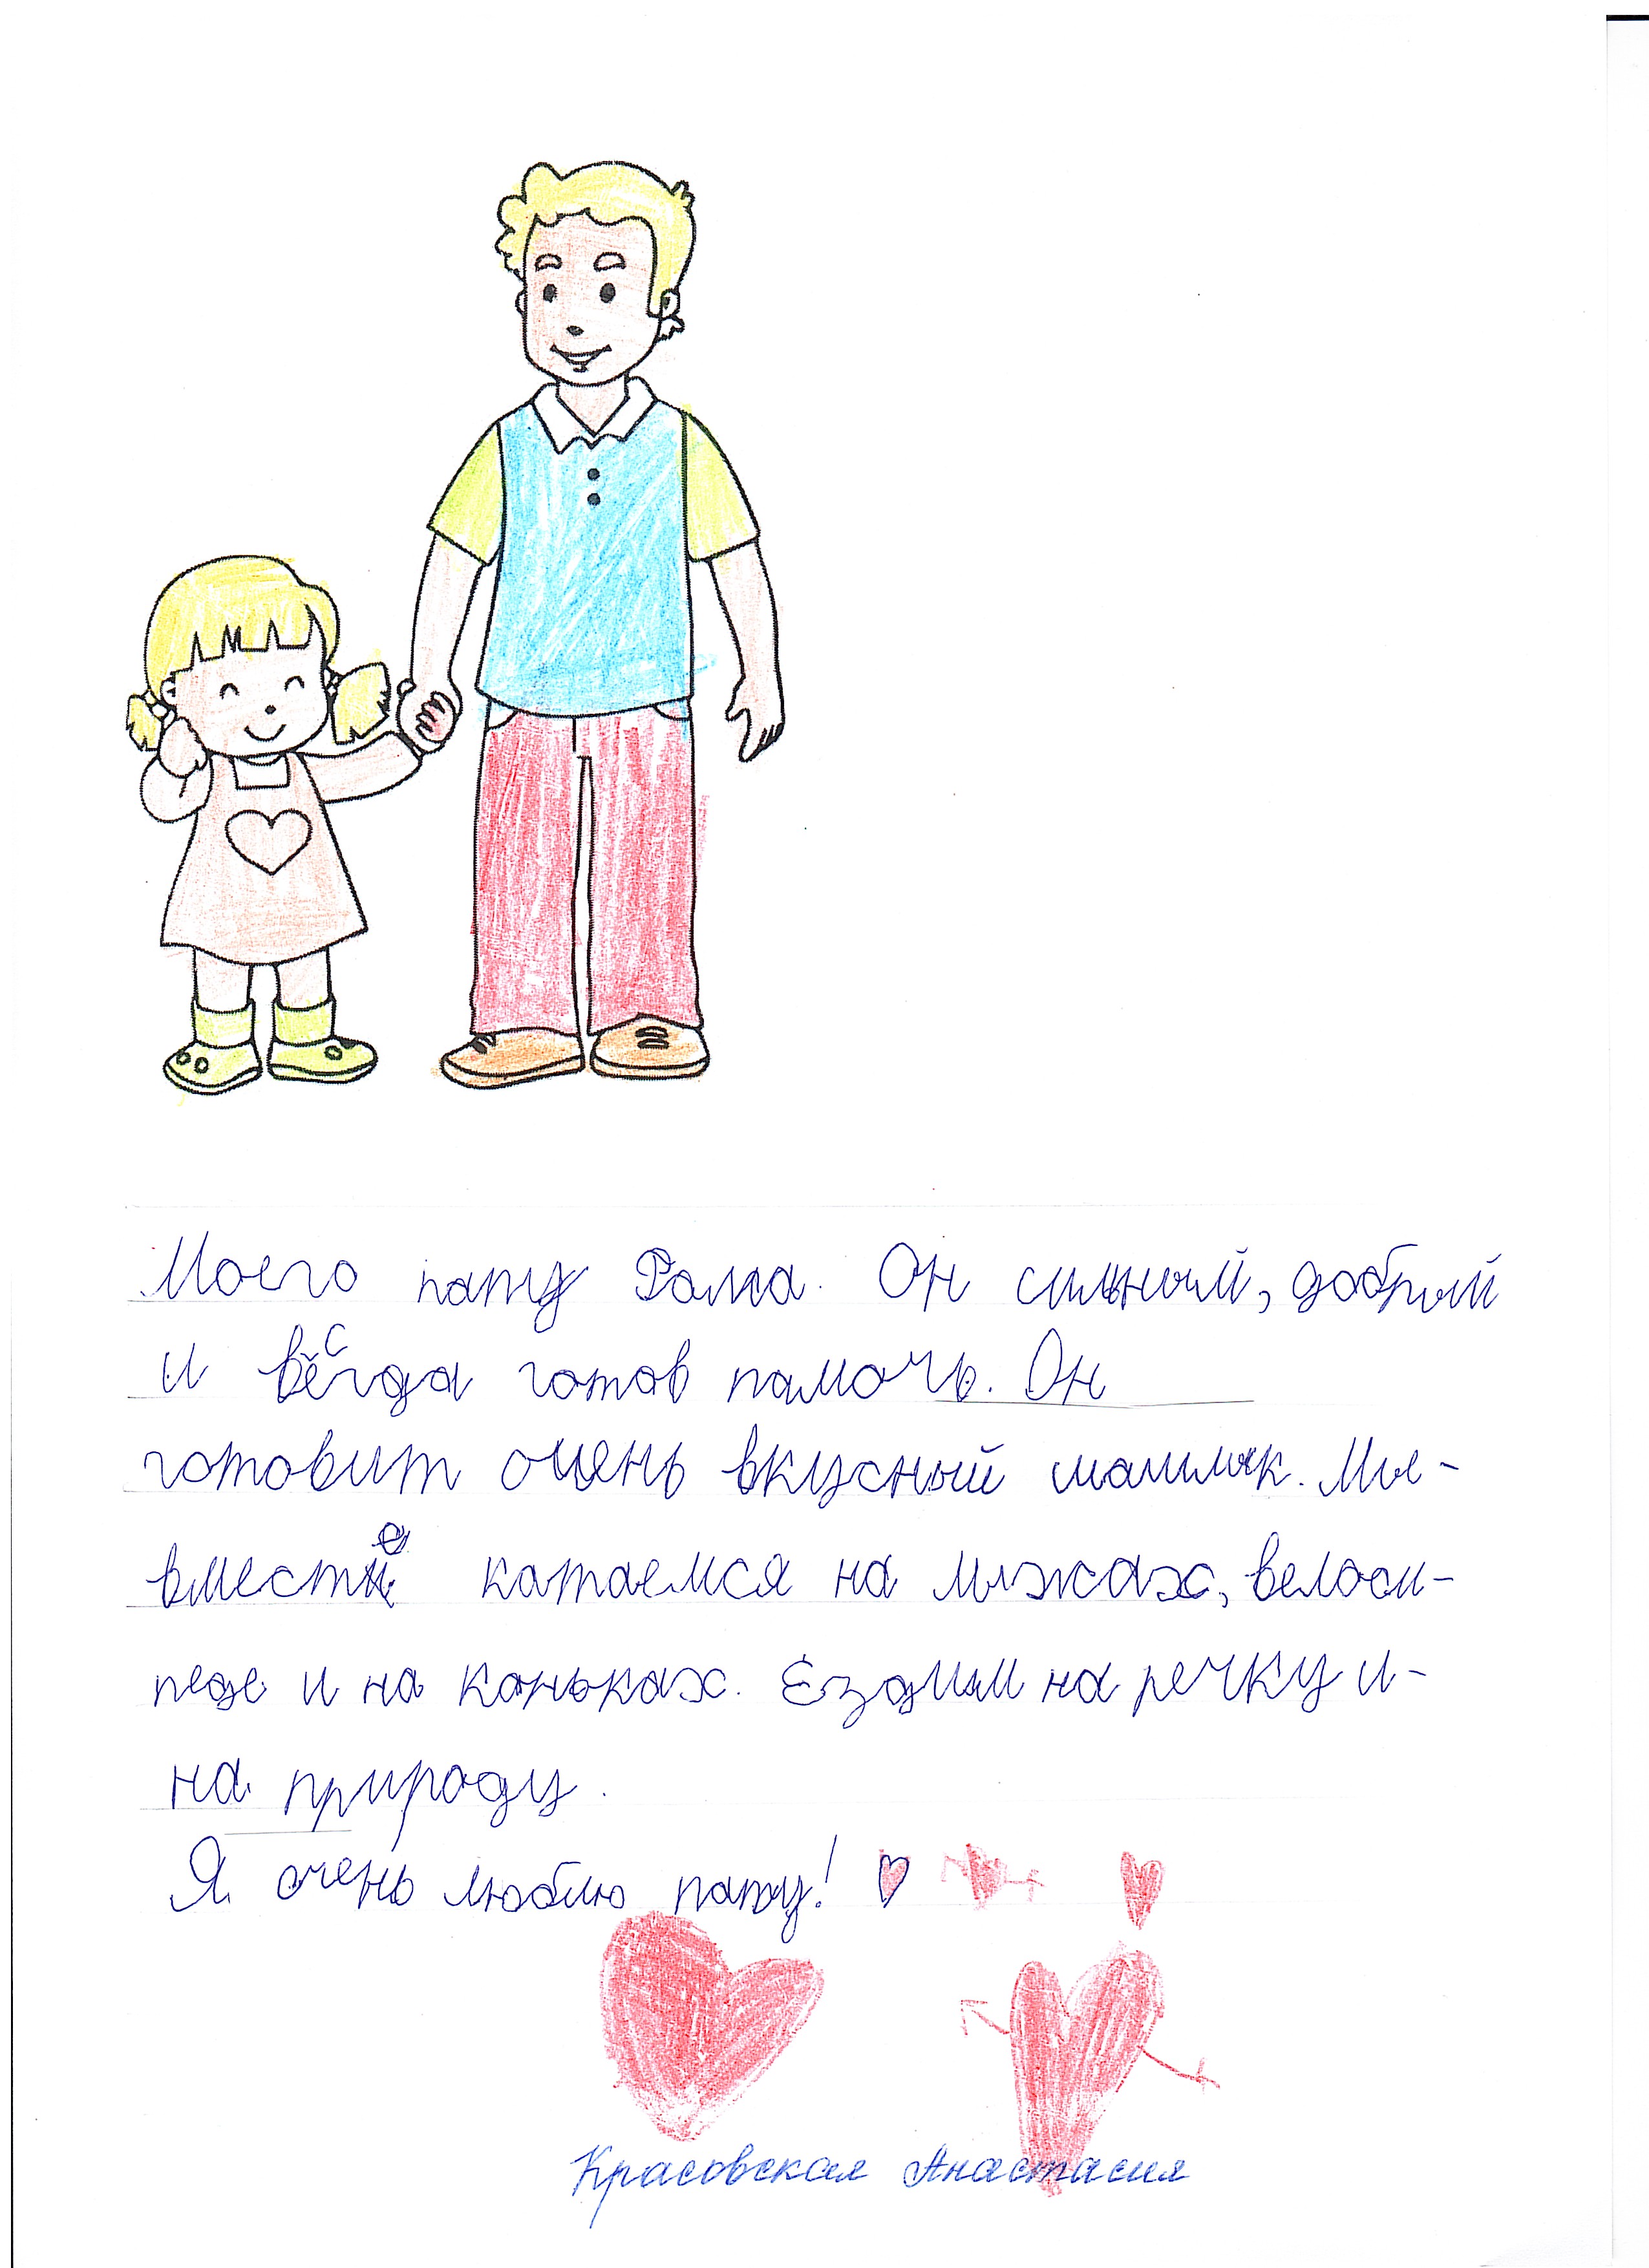 Моего папу Рома. Он сильный, добрый
и всегда готов памочь. Он
готовит очень вкусный шашлык. Мы-
вместе катаемся на лыжах, велоси-
педе и на коньках. Ездим на речку и-
на природу.
Я очень люблю папу!
Красовская Анастасия